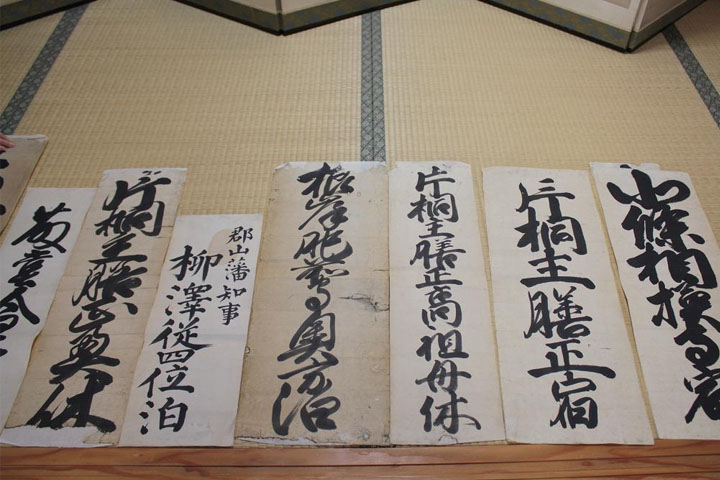 北條相模守宿
片桐主膳正宿
片桐主膳正高祖母休
根岸肥前守奥方泊
郡山藩知事
柳澤従四位泊
片桐主膳正奥休